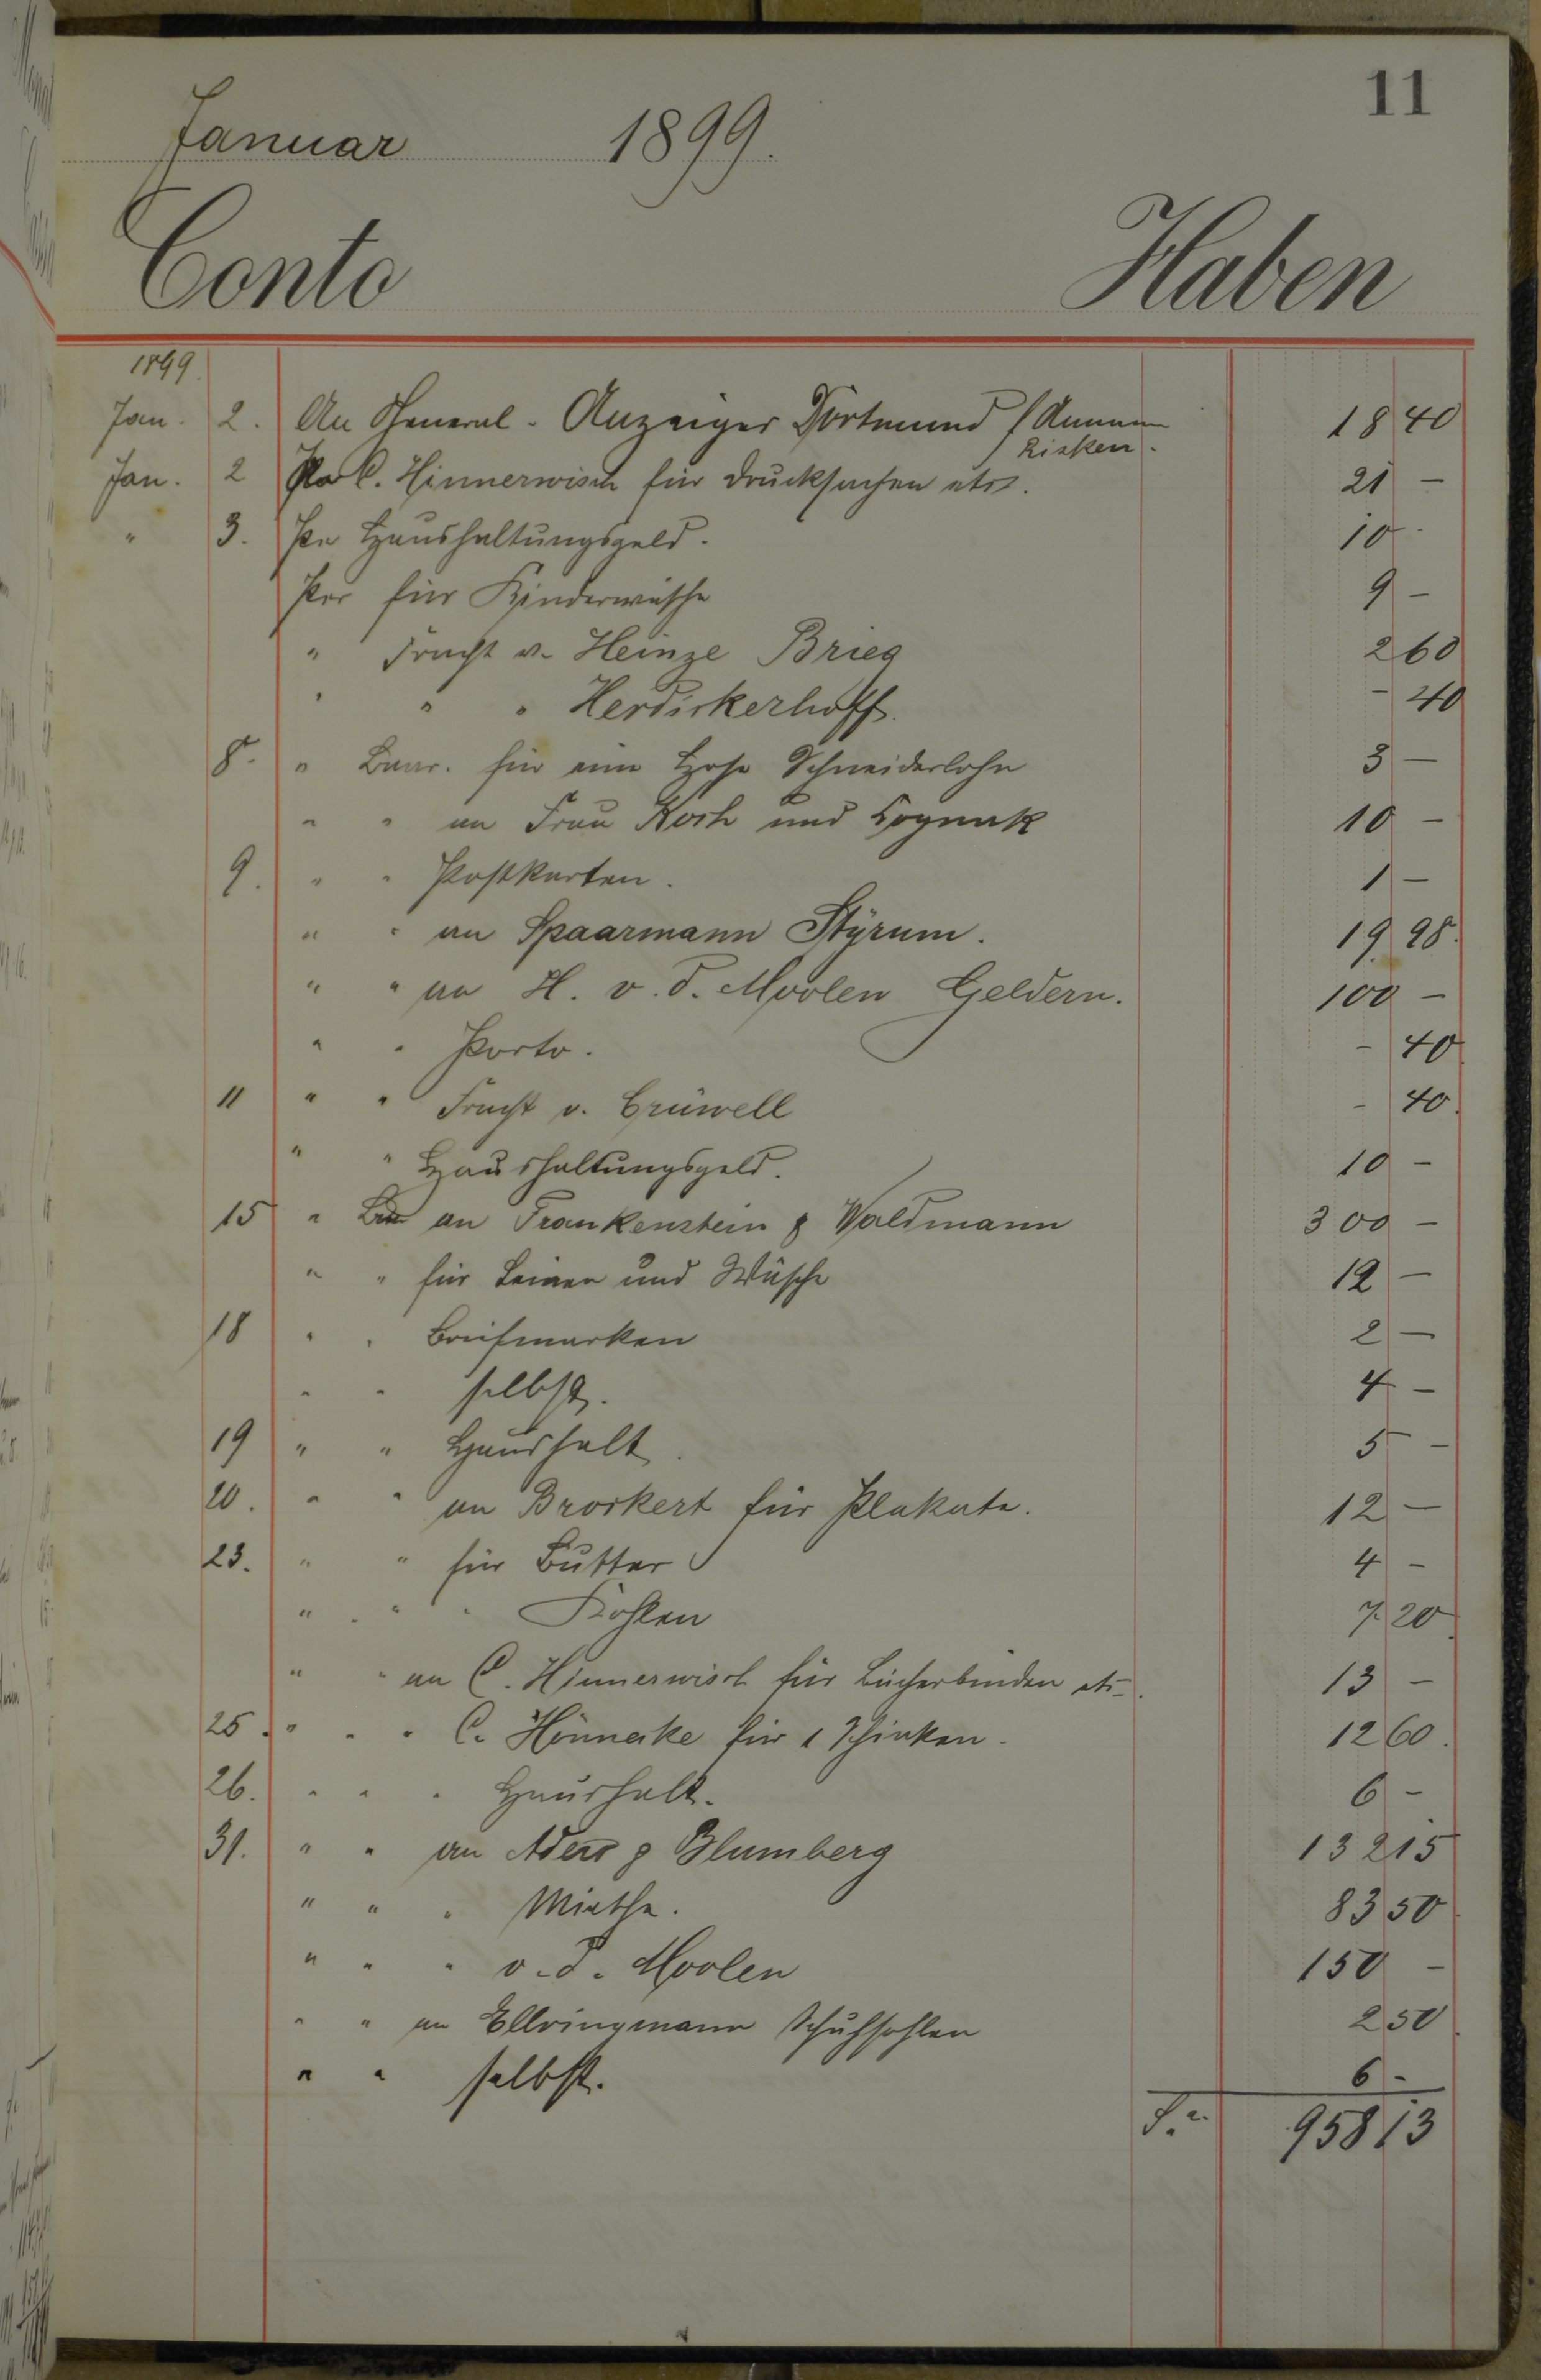 11
Januar 1899.
Conto Haben
1899.
Jan. 2. An General-Anzeiger Dortmund / 18 40
Risken.
Jan. 2 Per C. Hinnerwisch für Drucksachen etc. 21 –
" 3. Per Haushaltungsgeld. 10 -
Per für Kinderwäsche 9 –
" Fracht v. Heinze Brieg 2 60
" " " Herdickerhoff. - 40
8. " Baar. für eine Hose Schneiderlohn 3 –
" " an Frau Koch und Cognak 10 –
9. " " Postkarten. 1 –
" " an Spaarmann Styrum. 19 98.
" " an H. v. d. Moolen Geldern. 100 –
" " Porto. – 40
11 " " Fracht v. Crüwell – 40.
" " Haushaltungsgeld. 10 –
15 " Baar an Frankenstein & Waldmann 300 –
" " für Leinen und Wäsche 12 –
18 " " Briefmarken 2 –
" " selbst. 4 –
19 " " Haushalt. 5 –
20. " " an Brockert für Plakate. 12 –
23. " " für Butter 4 –
" " " Kohlen 7 20.
" " an C. Hinnerwisch für Bücherbinden etc. 13 –
25. " " " C. Hönneke für 1 Schinken. 12 60.
26. " " " Haushalt. 6 –
31. " " an Aders & Blumberg 132 15
" " " Miethe. 83 50
" " " v. d. Moolen 150 –
" " an Ellringmann Schuhsohlen 2 50.
" " selbst. 6 -
Sa. 958 13